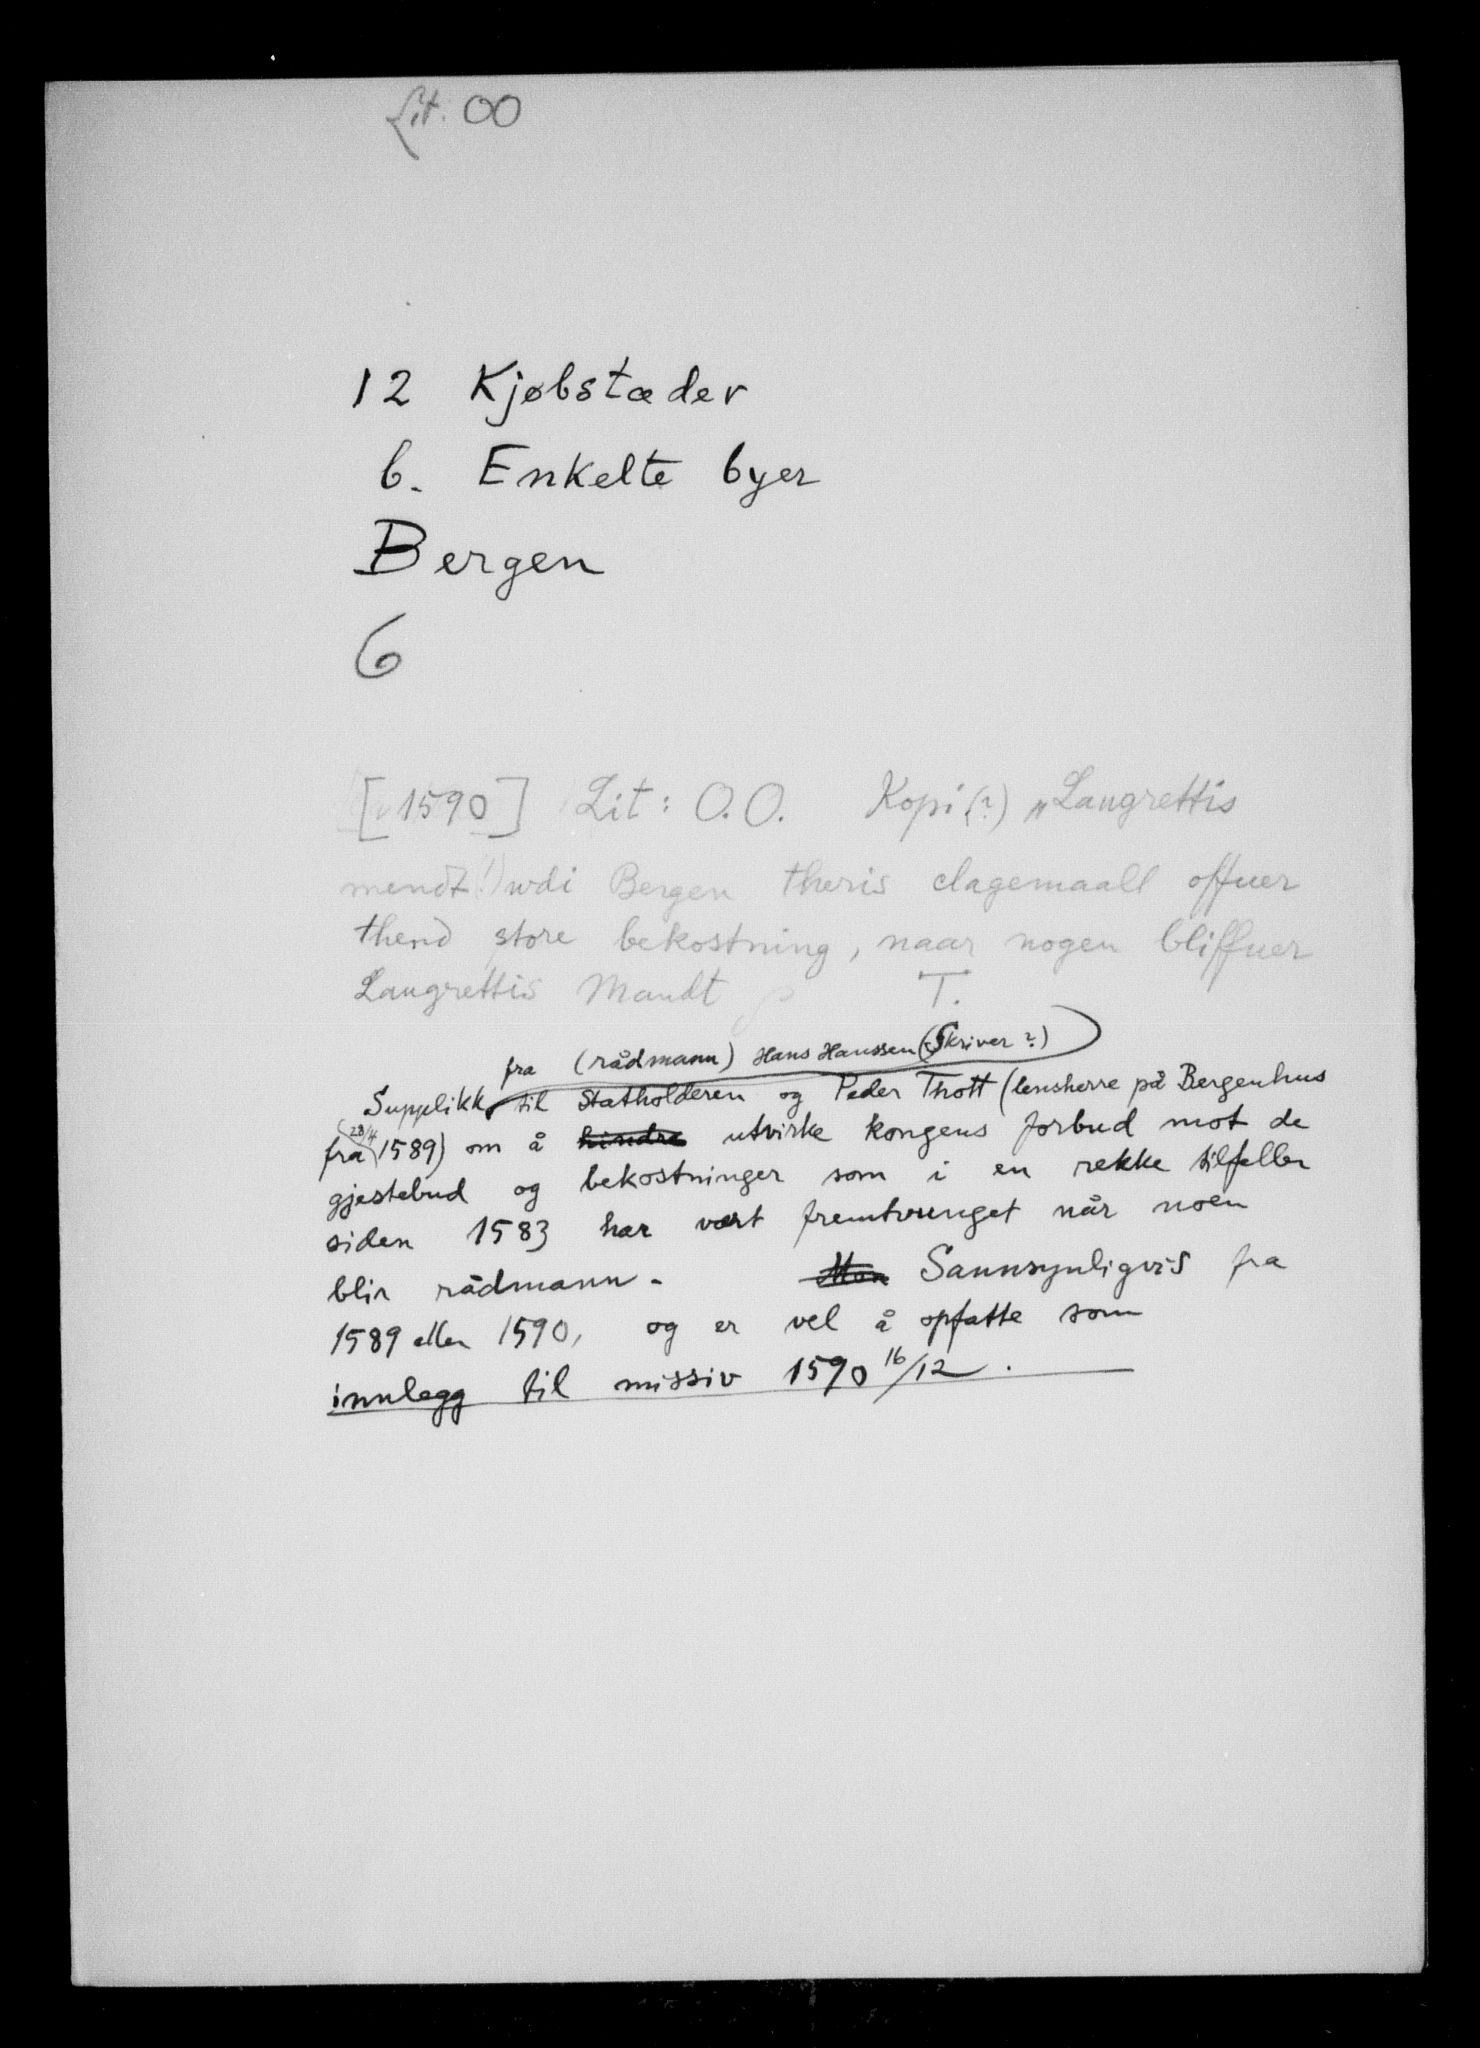 Lit. OO
12 Kjøbstæder
b. Enkelte byer
Bergen
6
[1590] Lit: O.O. Kopi(?) „Laugrettis
mendt (!) wdi Bergen theris clagemaall offuer
thend store bekostning, naar nogen bliffuer
Laugrettis Mandt T.
fra (rådmann) Hans Hanssen (Skriver?)
Supplikk til Statholderen og Peder Thott (lensherre på Bergenhus
fra 28/4 1589) om å hindre utvirke kongens forbud mot de
gjestebud og bekostninger som i en rekke tilfeller
siden 1583 har vært fremtvunget når noen
blir rådmann - Man Sannsynligvis fra
1589 eller 1590, og er vel å opfatte som
innlegg til missiv 1590 16/12.